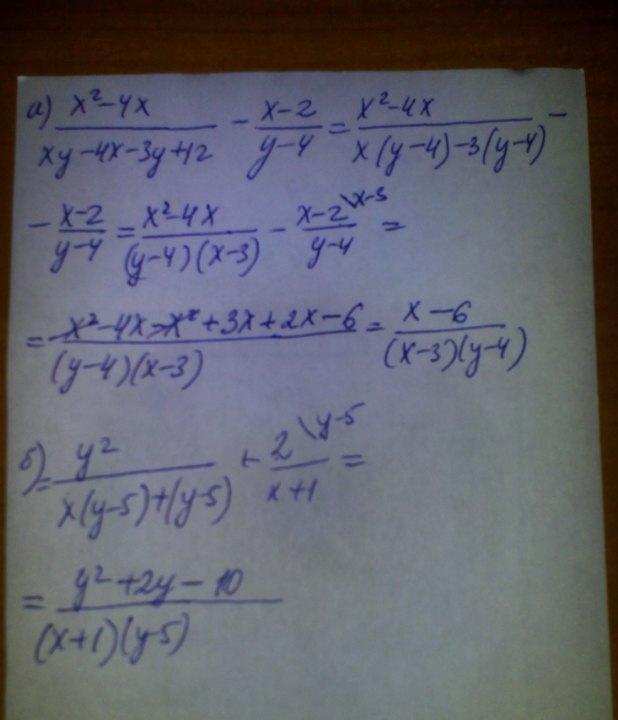 а) (x²-4x)/(xy-4x-3y+12) - (x-2)/(y-4) = (x²-4x)/(x(y-4)-3(y-4)) -
- (x-2)/(y-4) = (x²-4x)/((y-4)(x-3)) - (x-2\x-3)/(y-4) =
= (x²-4x-x²+3x+2x-6)/((y-4)(x-3)) = (x-6)/((x-3)(y-4))
б) = y²/(x(y-5)+(y-5)) + (2\y-5)/(x+1) =
= (y²+2y-10)/((x+1)(y-5))